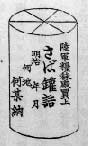 陸軍糧秣廠買上
さば罐詰
明治 年 月
何地
何某納